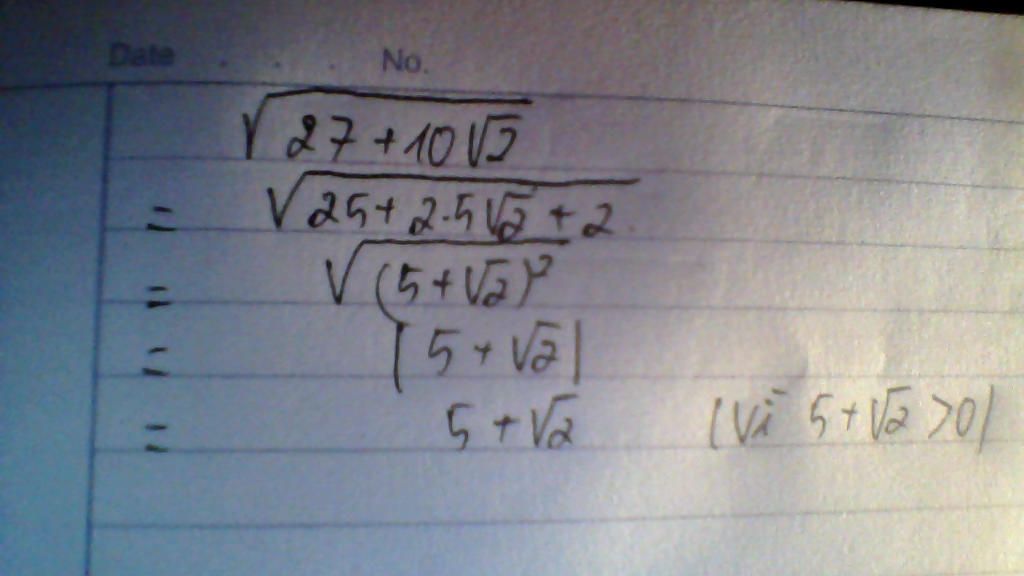 Date . . . No.
√(27+10√2)
= √(25+2·5√2+2)
= √((5+√2)²)
= |5+√2|
= 5+√2 (Vì 5+√2 >0)